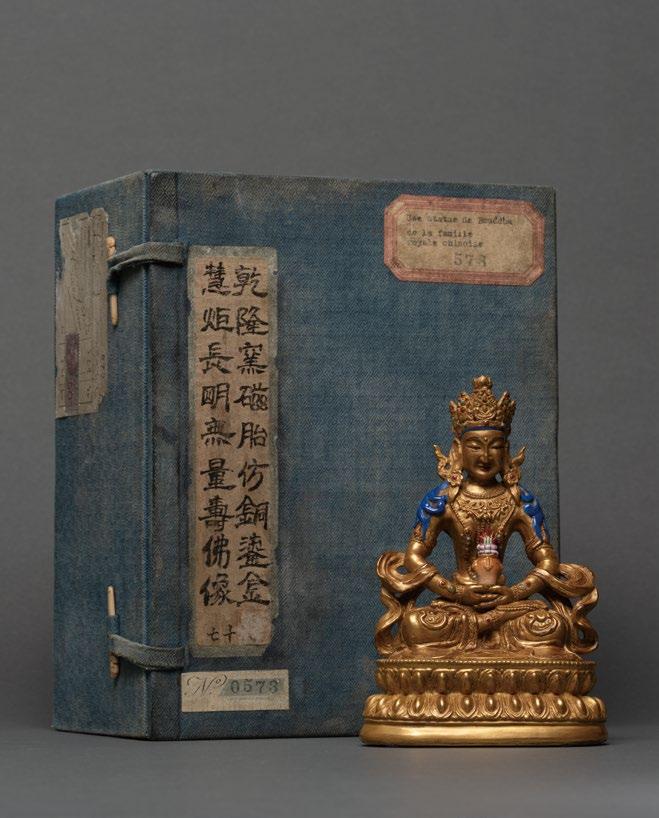 乾隆窯磁胎仿銅鎏金
慧炬長明無量壽佛像
七十
Une statue de Bouddha
de la famille
royale chinoise
573
No 0573